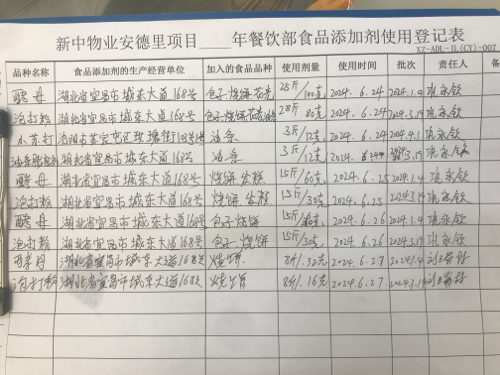 新中物业安德里项目____年餐饮部食品添加剂使用登记表
XZ-ADL-JL(CY)-007
品种名称 食品添加剂的生产经营单位 加入的食品品种 使用剂量 使用时间 批次 责任人 备
酵母 湖北省宜昌市城东大道168号 包子烧饼花卷 25斤/100克 2024.6.24 2024.1.4
泡打粉 湖北省宜昌市城东大道168号 包子烧饼花卷 28斤/80克 2024.6.24 2024.3.19
小苏打 油条 3斤/12克 2024.6.24 2024.4.1
湖北省宜昌市城东大道168号 油条 3斤/12克 2024.6.24
酵母 湖北省宜昌市城东大道168号 烧饼 15斤/60克 2024.6.25 2024.1.4
泡打粉 湖北省宜昌市城东大道168号 烧饼 15斤/30克 2024.6.25 2024.3.19
酵母 湖北省宜昌市城东大道168号 包子烧饼 15斤 2024.6.26 2024.1.4
泡打粉 湖北省宜昌市城东大道168号 包子烧饼 15斤/30克 2024.6.26 2024.3.19
酵母 湖北省宜昌市城东大道168号 烧饼 8斤.32克 2024.6.27 2024.1.4
泡打粉 湖北省宜昌市城东大道168号 烧饼 8斤.16克 2024.6.27 2024.3.19